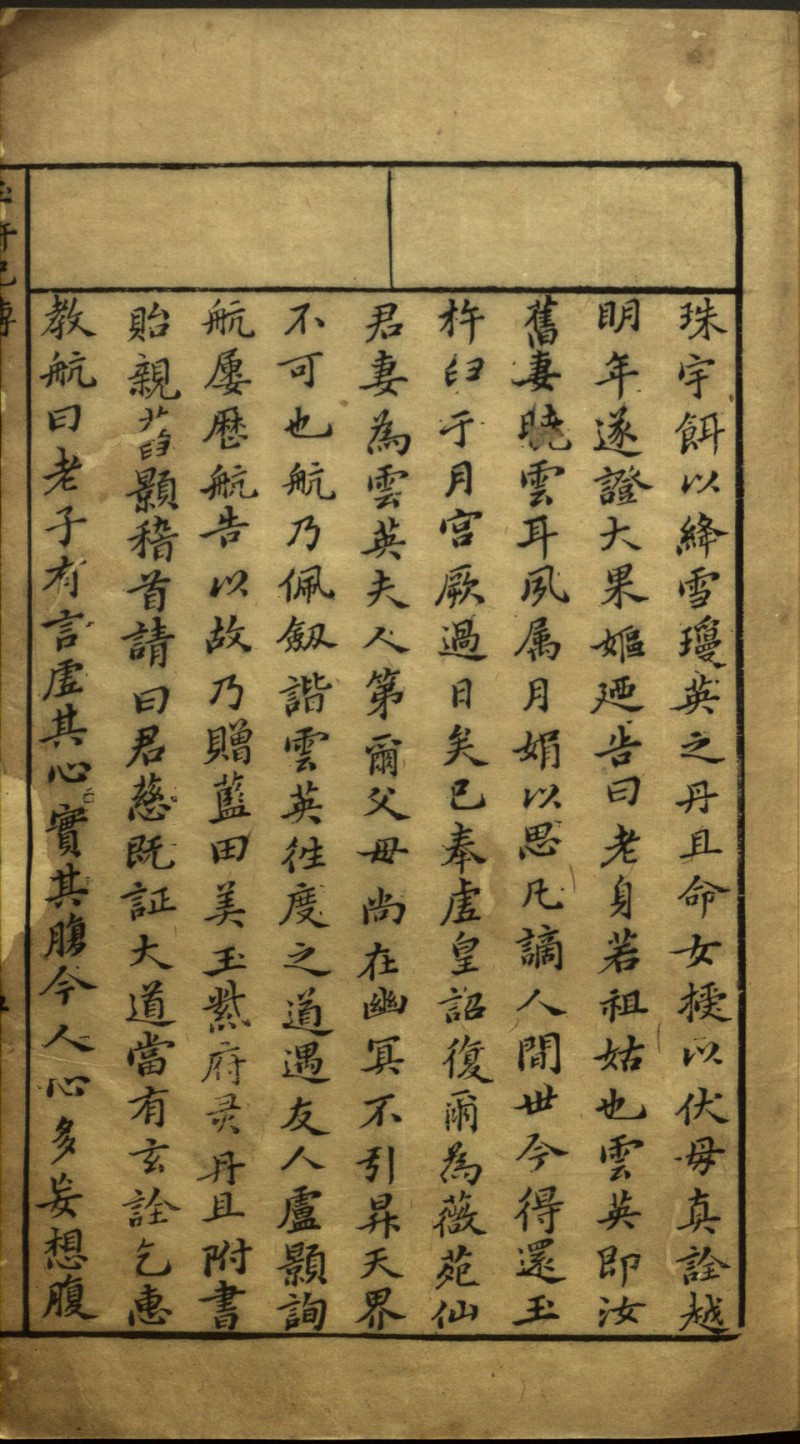 珠宇餌以絳雪瓊英之丹且命女授以伏毋真詮越
明年遂證大果嫗廼告曰老身若祖姑也雲英即汝
舊妻曉雲耳夙属月娟以思凡謫人間世今得還玉
杵臼于月宫厥過日矣已奉虛皇詔復爾為薇苑仙
君妻為雲英夫人第爾父母尚在幽冥不引昇天界
不可也航乃佩劔諧雲英徃度之道遇友人盧顥詢
航屢歷航告以故乃贈藍田美玉紫府灵丹且附書
貽親舊顥稽首請曰君慈既証大道當有玄詮乞惠
教航曰老子有言虛其心實其腹今人心多妄想腹
玉杵記傳